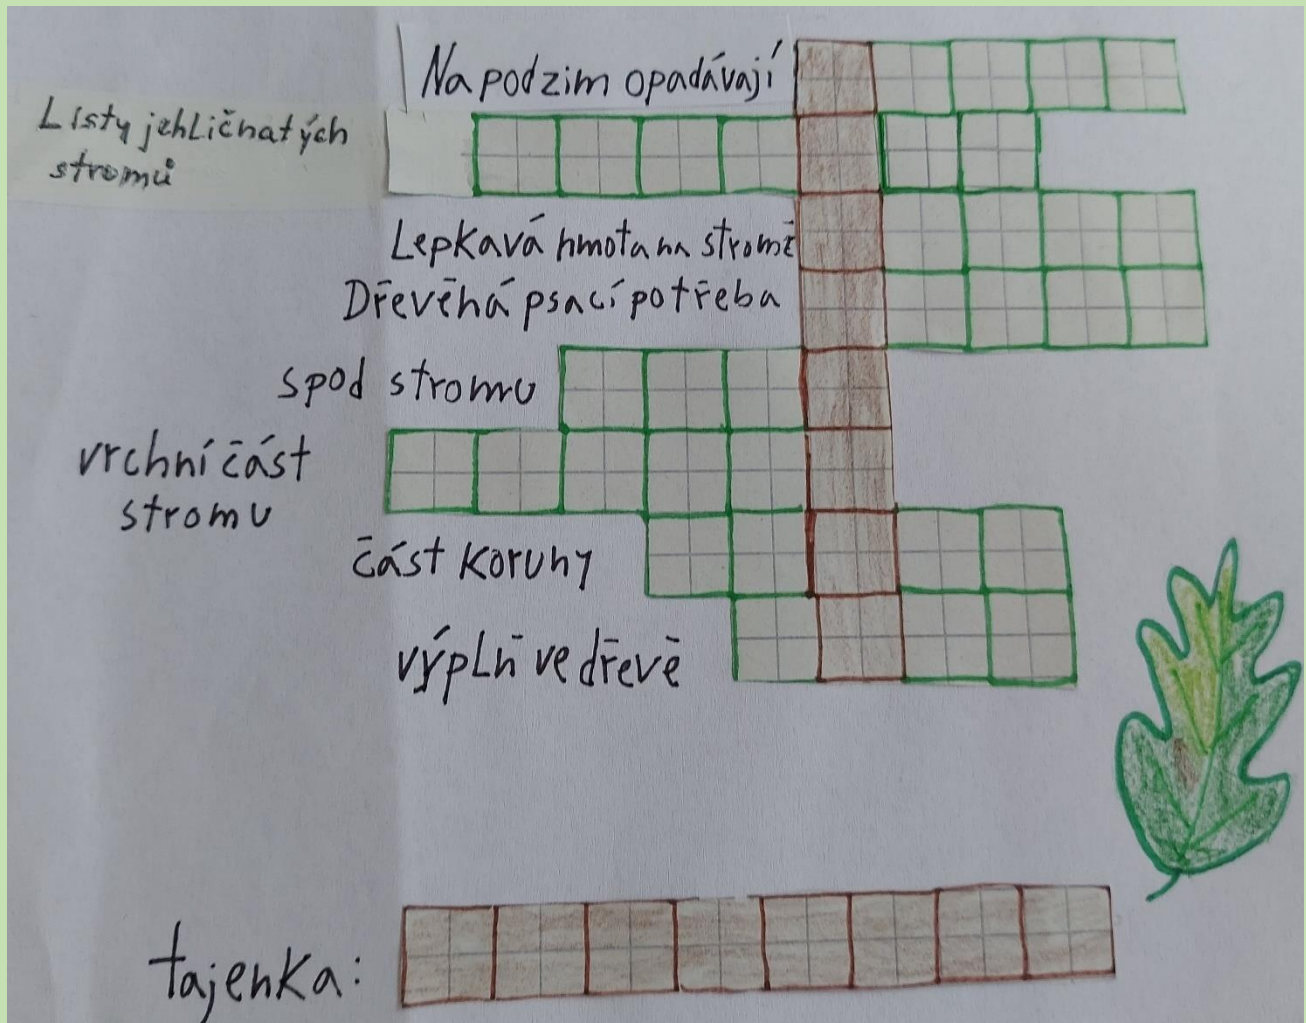 Na podzim opadávají
Listy jehličnatých
stromů
Lepkavá hmota na stromě
Dřevěná psací potřeba
spod stromu
vrchní část
stromu
část koruny
výplň ve dřevě
tajenka: